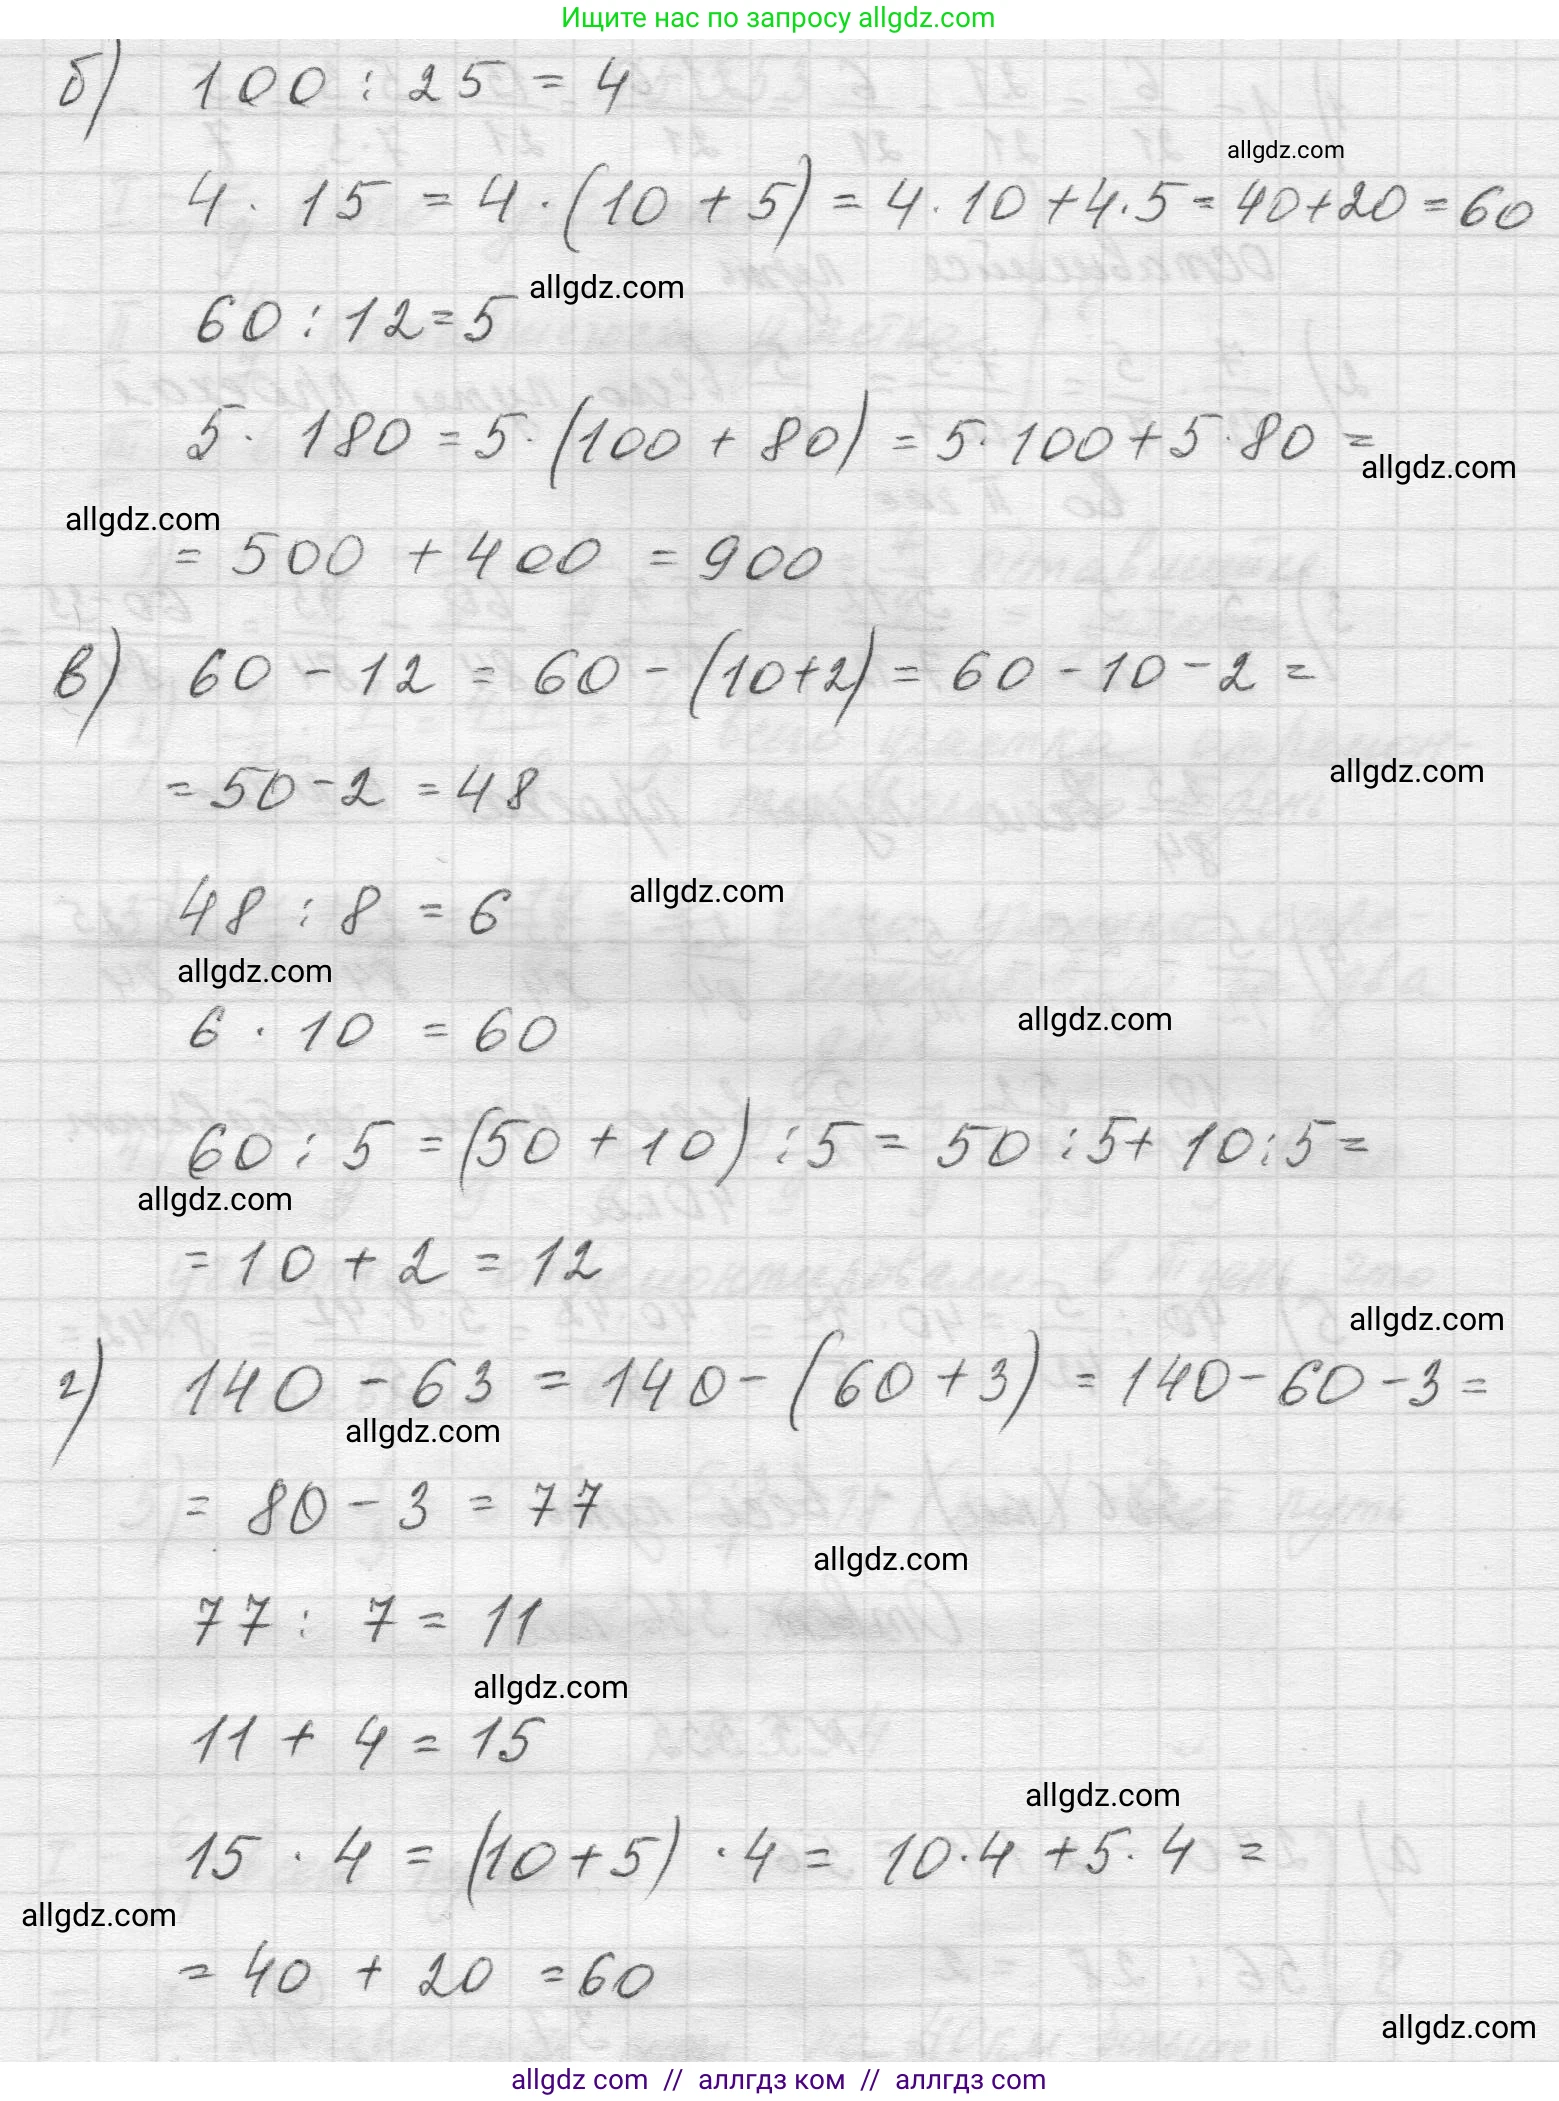 Ищите нас по запросу allgdz.com
б) 100 : 25 = 4
allgdz.com
4 · 15 = 4 · (10 + 5) = 4 · 10 + 4 · 5 = 40 + 20 = 60
allgdz.com
60 : 12 = 5
5 · 180 = 5 · (100 + 80) = 5 · 100 + 5 · 80 =
allgdz.com
allgdz.com
= 500 + 400 = 900
в) 60 - 12 = 60 - (10+2) = 60 - 10 - 2 =
allgdz.com
= 50 - 2 = 48
allgdz.com
48 : 8 = 6
allgdz.com
allgdz.com
6 · 10 = 60
60 : 5 = (50 + 10) : 5 = 50 : 5 + 10 : 5 =
allgdz.com
= 10 + 2 = 12
allgdz.com
г) 140 - 63 = 140 - (60 + 3) = 140 - 60 - 3 =
allgdz.com
= 80 - 3 = 77
allgdz.com
77 : 7 = 11
allgdz.com
11 + 4 = 15
allgdz.com
15 · 4 = (10 + 5) · 4 = 10 · 4 + 5 · 4 =
allgdz.com
= 40 + 20 = 60
allgdz.com
allgdz com // аллгдз ком // аллгдз com